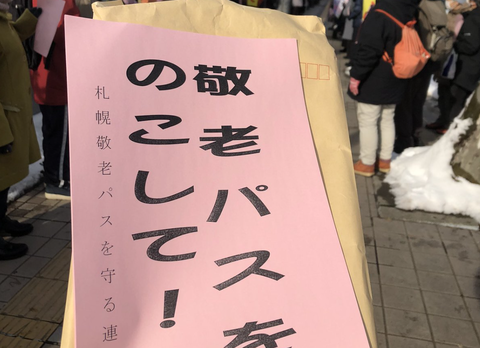 敬老パスを
のこして！
札幌敬老パスを守る連